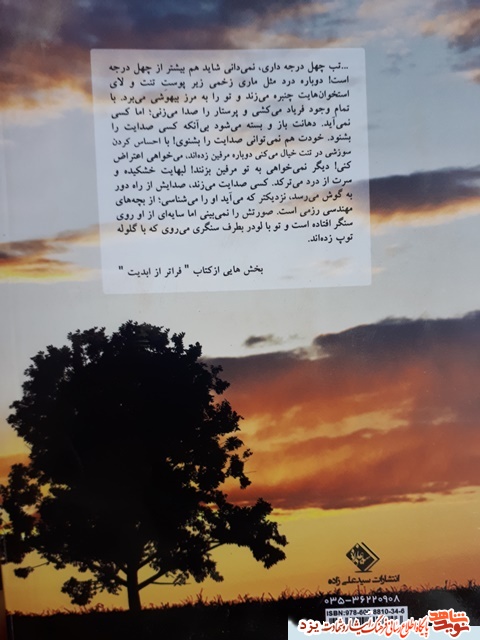 ...تب چهل درجه داری، نمی‌دانی شاید هم بیشتر از چهل درجه
است! دوباره درد مثل ماری زخمی زیر پوست تنت و لای
استخوان‌هایت چنبره می‌زند و تو را به مرز بیهوشی می‌برد. با
تمام وجود فریاد می‌کشی و پرستار را صدا می‌زنی؛ اما کسی
نمی‌آید. دهانت باز و بسته می‌شود بی‌آنکه کسی صدایت را
بشنود. خودت هم نمی‌توانی صدایت را بشنوی! با احساس کردن
سوزشی در تنت خیال می‌کنی دوباره مرفین زده‌اند. می‌خواهی اعتراض
کنی! دیگر نمی‌خواهی به تو مرفین بزنند! لبهایت خشکیده و
سرت از درد می‌ترکد. کسی صدایت می‌زند، صدایش از راه دور
به گوش می‌رسد، نزدیکتر که می‌آید او را می‌شناسی؛ از بچه‌های
مهندسی رزمی است. صورتش را نمی‌بینی اما سایه‌ای از او روی
سنگر افتاده است و تو با لودر بطرف سنگری می‌روی که با گلوله
توپ زده‌اند.
بخش هایی از کتاب " فراتر از ابدیت "
انتشارات سیدعلی زاده
۰۳۵-۳۶۲۲۰۹۰۸